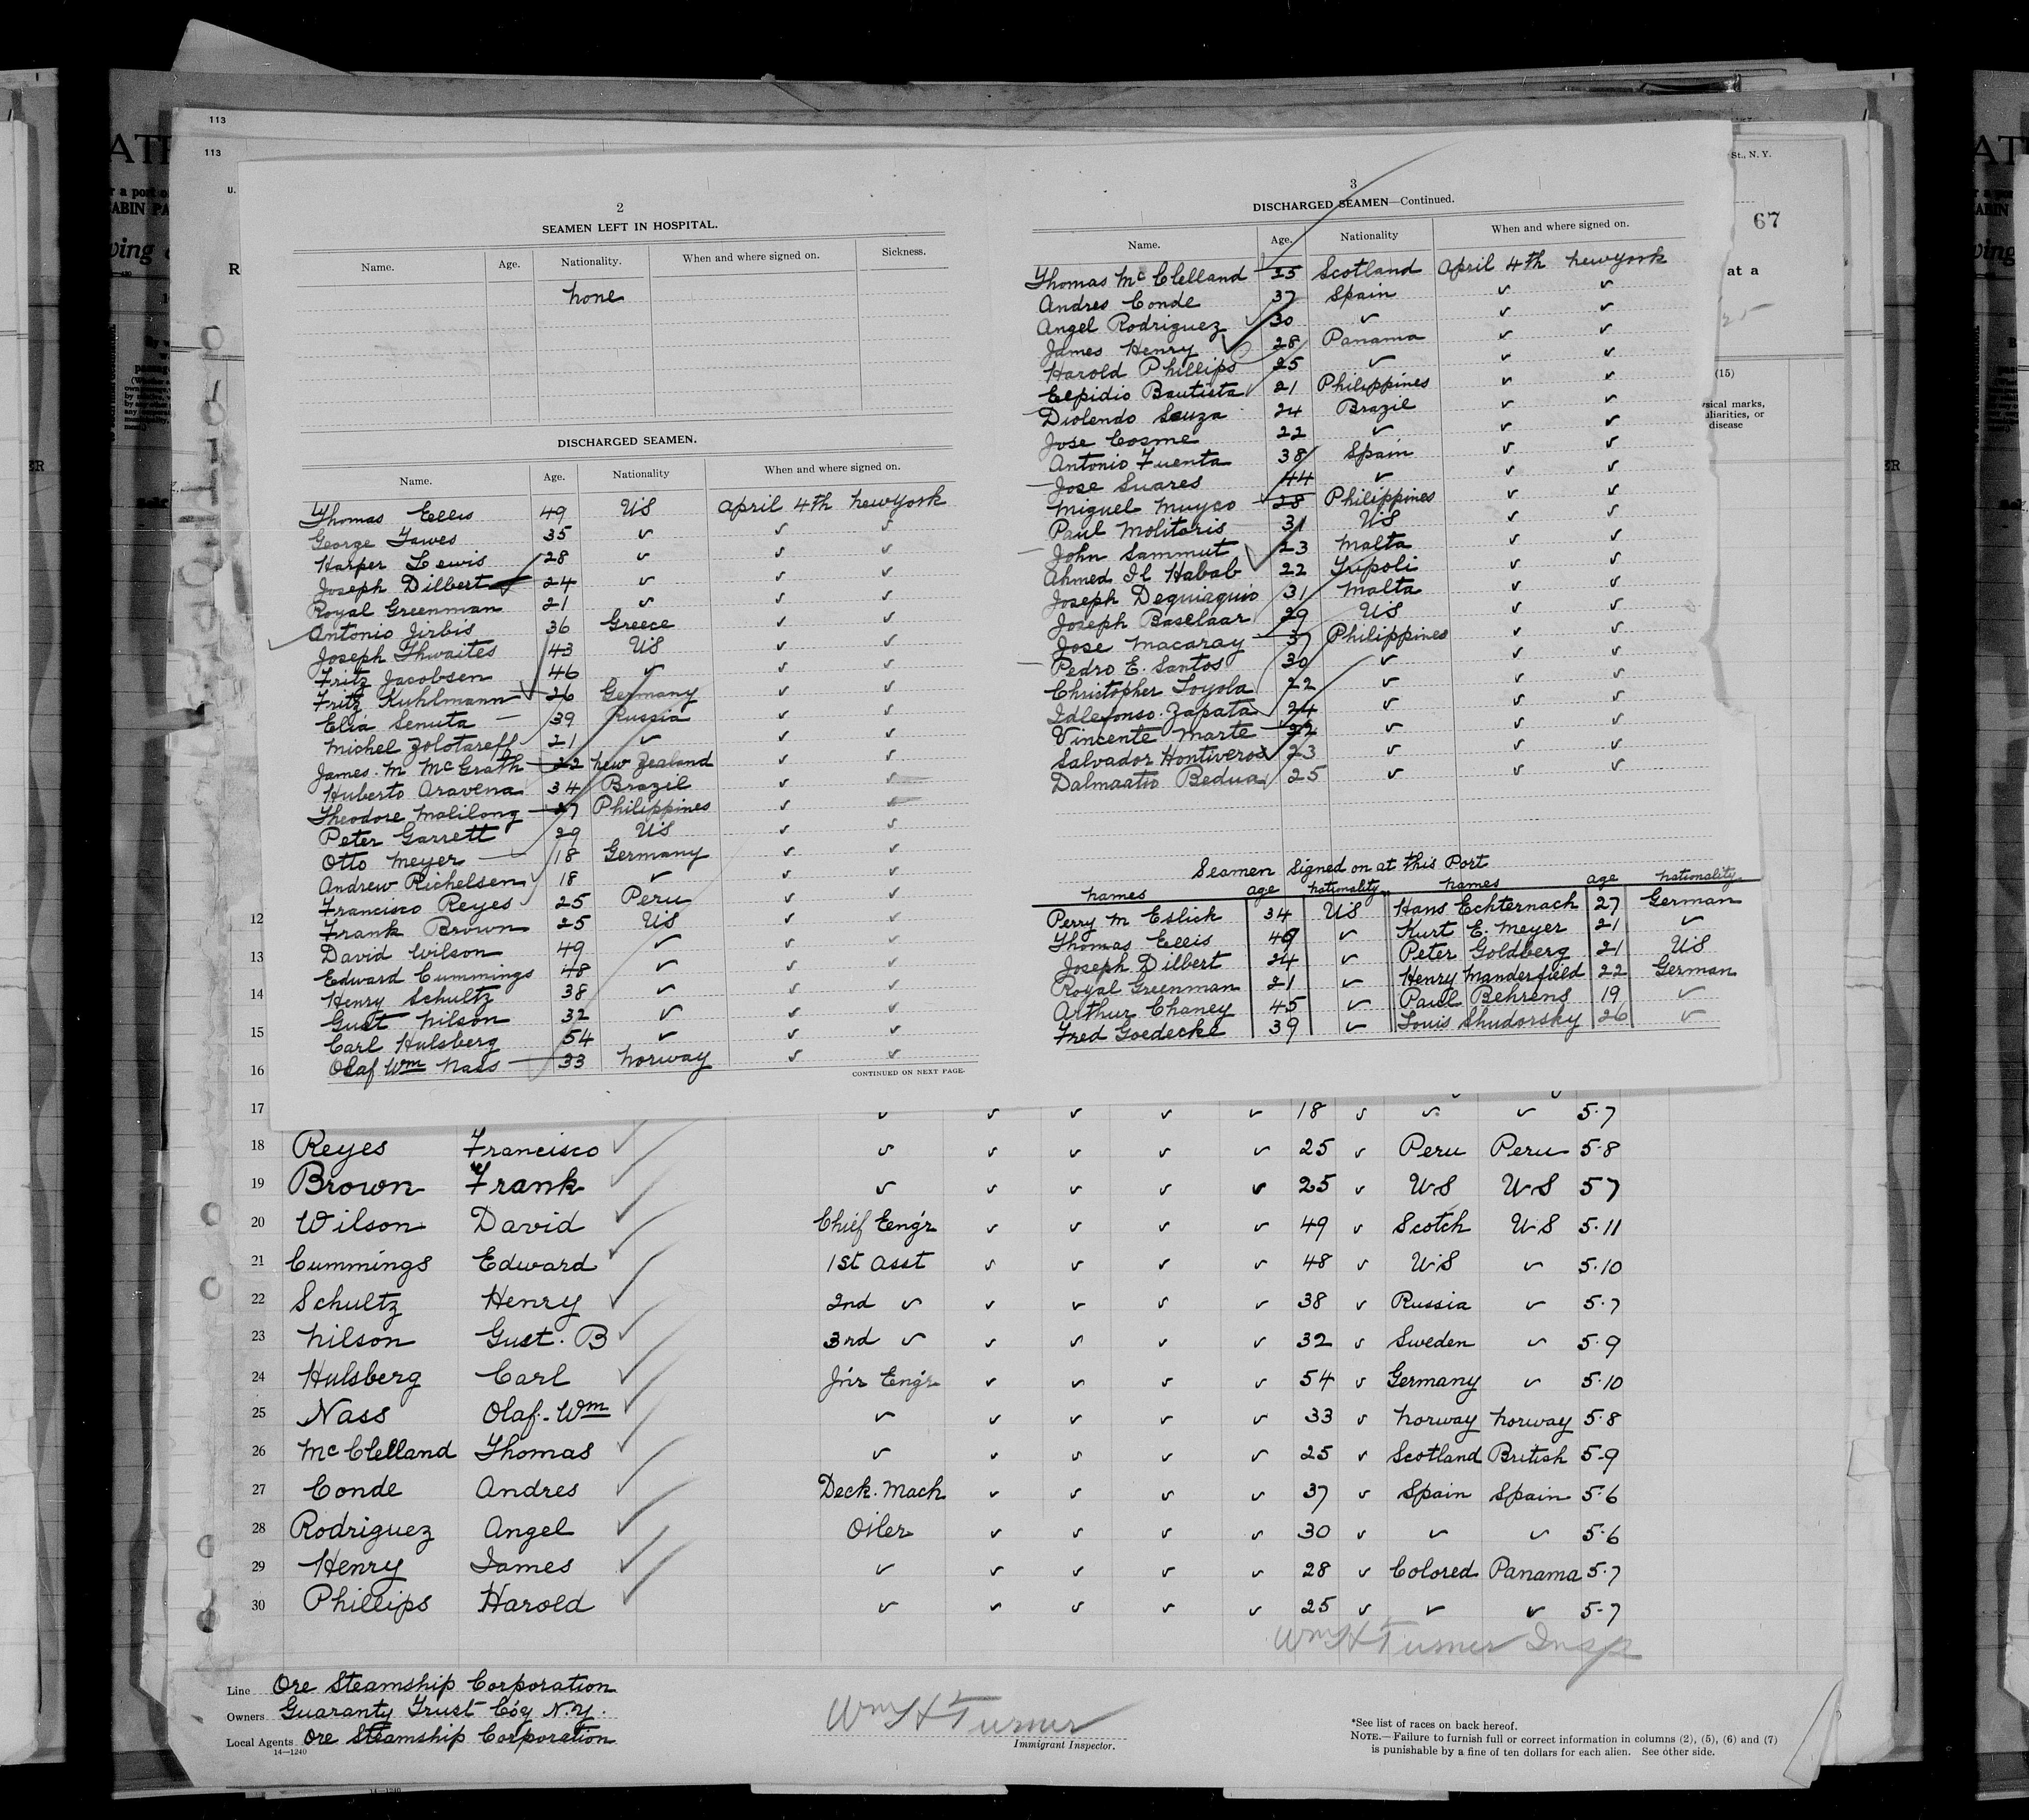 113
113
2
SEAMEN LEFT IN HOSPITAL.
Name. Age. Nationality. When and where signed on. Sickness.
none
DISCHARGED SEAMEN.
Name. Age. Nationality When and where signed on.
Thomas Ellis 49 US April 4th New York
George Fawes 35 ✓ ✓ ✓
Harper Lewis 28 ✓ ✓ ✓
Joseph Dilbert 24 ✓ ✓ ✓
Royal Greenman 21 ✓ ✓ ✓
Antonio Jirbis 36 Greece ✓ ✓
Joseph Thwaites 43 US ✓ ✓
Fritz Jacobsen 46 ✓ ✓ ✓
Fritz Kuhlmann 26 Germany ✓ ✓
Elia Senuta 39 Russia ✓ ✓
Michel Zolotareff 21 ✓ ✓ ✓
James. M McGrath 22 New Zealand ✓ ✓
Huberto Aravena 34 Brazil ✓ ✓
Theodore Malilong 27 Philippines ✓ ✓
Peter Garrett 29 US ✓ ✓
Otto Meyer 18 Germany ✓ ✓
Andrew Richelsen 18 ✓ ✓ ✓
Francisco Reyes 25 Peru ✓ ✓
Frank Brown 25 US ✓ ✓
David Wilson 49 ✓ ✓ ✓
Edward Cummings 48 ✓ ✓ ✓
Henry Schultz 38 ✓ ✓ ✓
Gust Nilson 32 ✓ ✓ ✓
Carl Hulsberg 54 ✓ ✓ ✓
Olaf Wm Nass 33 Norway ✓ ✓
CONTINUED ON NEXT PAGE.
3
DISCHARGED SEAMEN—Continued.
Name. Age. Nationality When and where signed on.
Thomas McClelland 25 Scotland April 4th New York
Andres Conde 37 Spain ✓ ✓
Angel Rodriguez 30 ✓ ✓ ✓
James Henry 28 Panama ✓ ✓
Harold Phillips 25 ✓ ✓ ✓
Elpidio Bautista 21 Philippines ✓ ✓
Diolendo Souza 24 Brazil ✓ ✓
Jose Cosme 22 ✓ ✓ ✓
Antonio Fuenta 38 Spain ✓ ✓
Jose Suares 44 ✓ ✓ ✓
Miguel Muyco 28 Philippines ✓ ✓
Paul Molitoris 31 US ✓ ✓
John Sammut 23 Malta ✓ ✓
Ahmed Il Habab 22 Tripoli ✓ ✓
Joseph Deguiaguio 31 Malta ✓ ✓
Joseph Baselaar 29 US ✓ ✓
Jose Macaray 37 Philippines ✓ ✓
Pedro E. Santos 30 ✓ ✓ ✓
Christopher Loyola 22 ✓ ✓ ✓
Idlefonso. Zapata 24 ✓ ✓ ✓
Vincente Marte 32 ✓ ✓ ✓
Salvador Hontiveros 23 ✓ ✓ ✓
Dalmaatio Bedua 25 ✓ ✓ ✓
Seamen Signed on at this Port
names age nationality names age nationality
Perry M Eslick 34 US Hans Echternach 27 German
Thomas Ellis 49 ✓ Kurt E. Meyer 21 ✓
Joseph Dilbert 24 ✓ Peter Goldberg 21 US
Royal Greenman 21 ✓ Henry Manderfield 22 German
Arthur Chaney 45 ✓ Paul Behrens 19 ✓
Fred Goedecke 39 ✓ Louis Shudorsky 26 ✓
St., N. Y.
67
at a
(15)
12
13
14
15
16
17 ✓ ✓ ✓ ✓ ✓ 18 ✓ ✓ ✓ 5·7
18 Reyes Francisco ✓ ✓ ✓ ✓ ✓ 25 ✓ Peru Peru 5·8
19 Brown Frank ✓ ✓ ✓ ✓ ✓ 25 ✓ US US 5 7
20 Wilson David Chief Eng'r ✓ ✓ ✓ ✓ 49 ✓ Scotch US 5·11
21 Cummings Edward 1st Asst ✓ ✓ ✓ ✓ 48 ✓ US ✓ 5·10
22 Schultz Henry 2nd ✓ ✓ ✓ ✓ ✓ 38 ✓ Russia ✓ 5·7
23 Nilson Gust. B 3rd ✓ ✓ ✓ ✓ ✓ 32 ✓ Sweden ✓ 5·9
24 Hulsberg Carl J'nr Eng'r ✓ ✓ ✓ ✓ 54 ✓ Germany ✓ 5·10
25 Nass Olaf-Wm ✓ ✓ ✓ ✓ ✓ 33 ✓ Norway Norway 5·8
26 McClelland Thomas ✓ ✓ ✓ ✓ ✓ 25 ✓ Scotland British 5-9
27 Conde Andres Deck. Mach ✓ ✓ ✓ ✓ 37 ✓ Spain Spain 5·6
28 Rodriguez Angel Oiler ✓ ✓ ✓ ✓ 30 ✓ ✓ ✓ 5·6
29 Henry James ✓ ✓ ✓ ✓ ✓ 28 ✓ Colored Panama 5·7
30 Phillips Harold ✓ ✓ ✓ ✓ ✓ 25 ✓ ✓ ✓ 5-7
Wm H Turner Insp
Line Ore Steamship Corporation
Owners Guaranty Trust Coy N.Y.
Local Agents Ore Steamship Corporation
14—1240
Wm H Turner
Immigrant Inspector.
*See list of races on back hereof.
NOTE.—Failure to furnish full or correct information in columns (2), (5), (6) and (7)
is punishable by a fine of ten dollars for each alien. See other side.